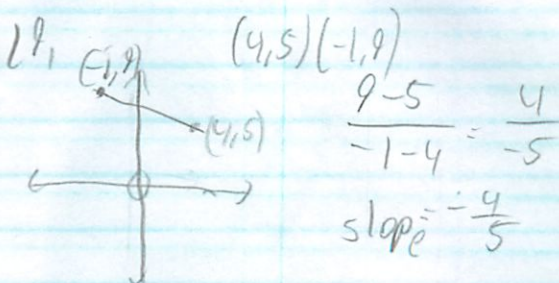 19,
(-1,9)
(4,5)
(4,5)(-1,9)
9-5 / -1-4 = 4 / -5
slope = -4/5